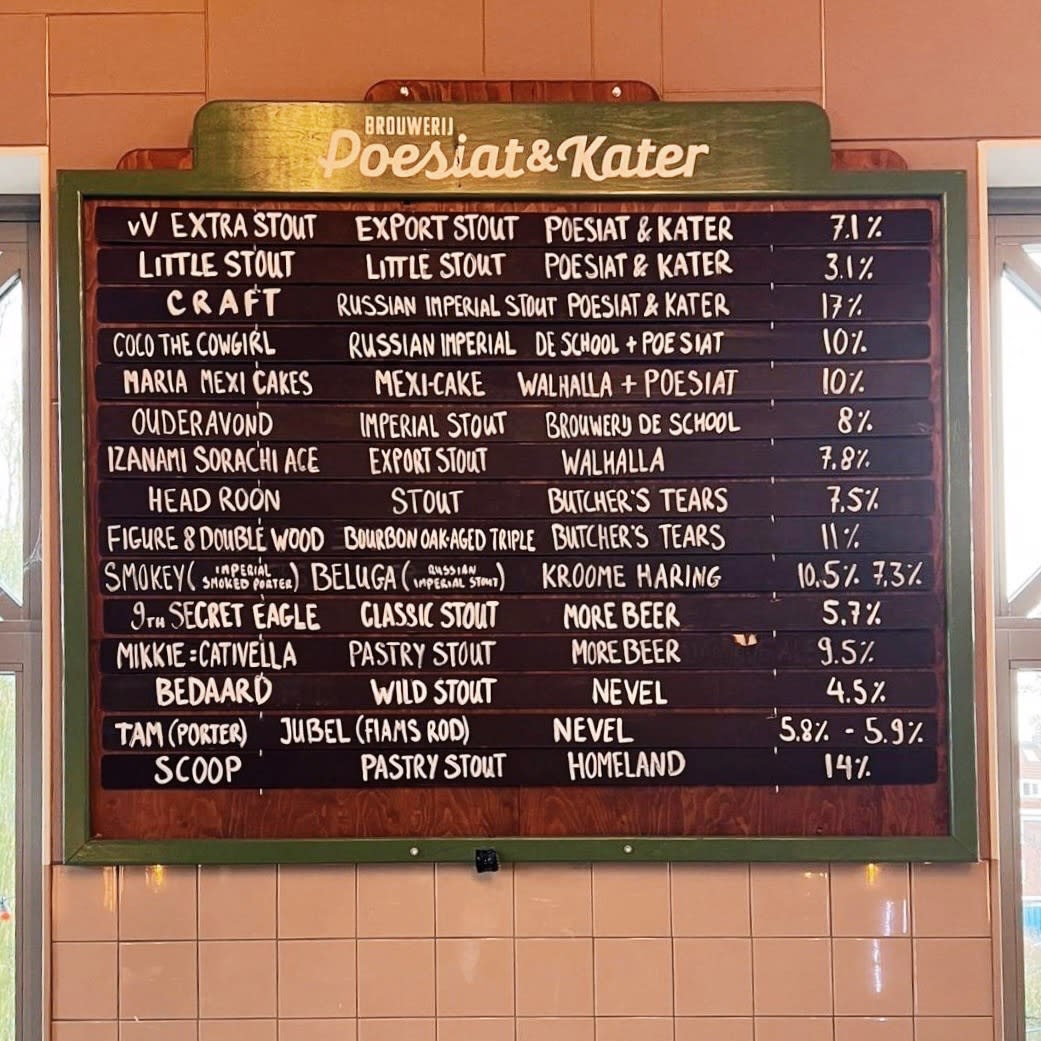 BROUWERIJ
Poesiat & Kater
vV EXTRA STOUT EXPORT STOUT POESIAT & KATER 7.1%
LITTLE STOUT LITTLE STOUT POESIAT & KATER 3.1%
CRAFT RUSSIAN IMPERIAL STOUT POESIAT & KATER 17%
COCO THE COWGIRL RUSSIAN IMPERIAL DE SCHOOL + POESIAT 10%
MARIA MEXI CAKES MEXI-CAKE WALHALLA + POESIAT 10%
OUDERAVOND IMPERIAL STOUT BROUWERIJ DE SCHOOL 8%
IZANAMI SORACHI ACE EXPORT STOUT WALHALLA 7.8%
HEAD ROON STOUT BUTCHER'S TEARS 7.5%
FIGURE 8 DOUBLE WOOD BOURBON OAK-AGED TRIPLE BUTCHER'S TEARS 11%
SMOKEY (IMPERIAL SMOKED PORTER) BELUGA (RUSSIAN IMPERIAL STOUT) KROOME HARING 10.5% 7,3%
9TH SECRET EAGLE CLASSIC STOUT MORE BEER 5.7%
MIKKIE : CATIVELLA PASTRY STOUT MORE BEER 9.5%
BEDAARD WILD STOUT NEVEL 4.5%
TAM (PORTER) JUBEL (FLAMS ROD) NEVEL 5.8% - 5.9%
SCOOP PASTRY STOUT HOMELAND 14%